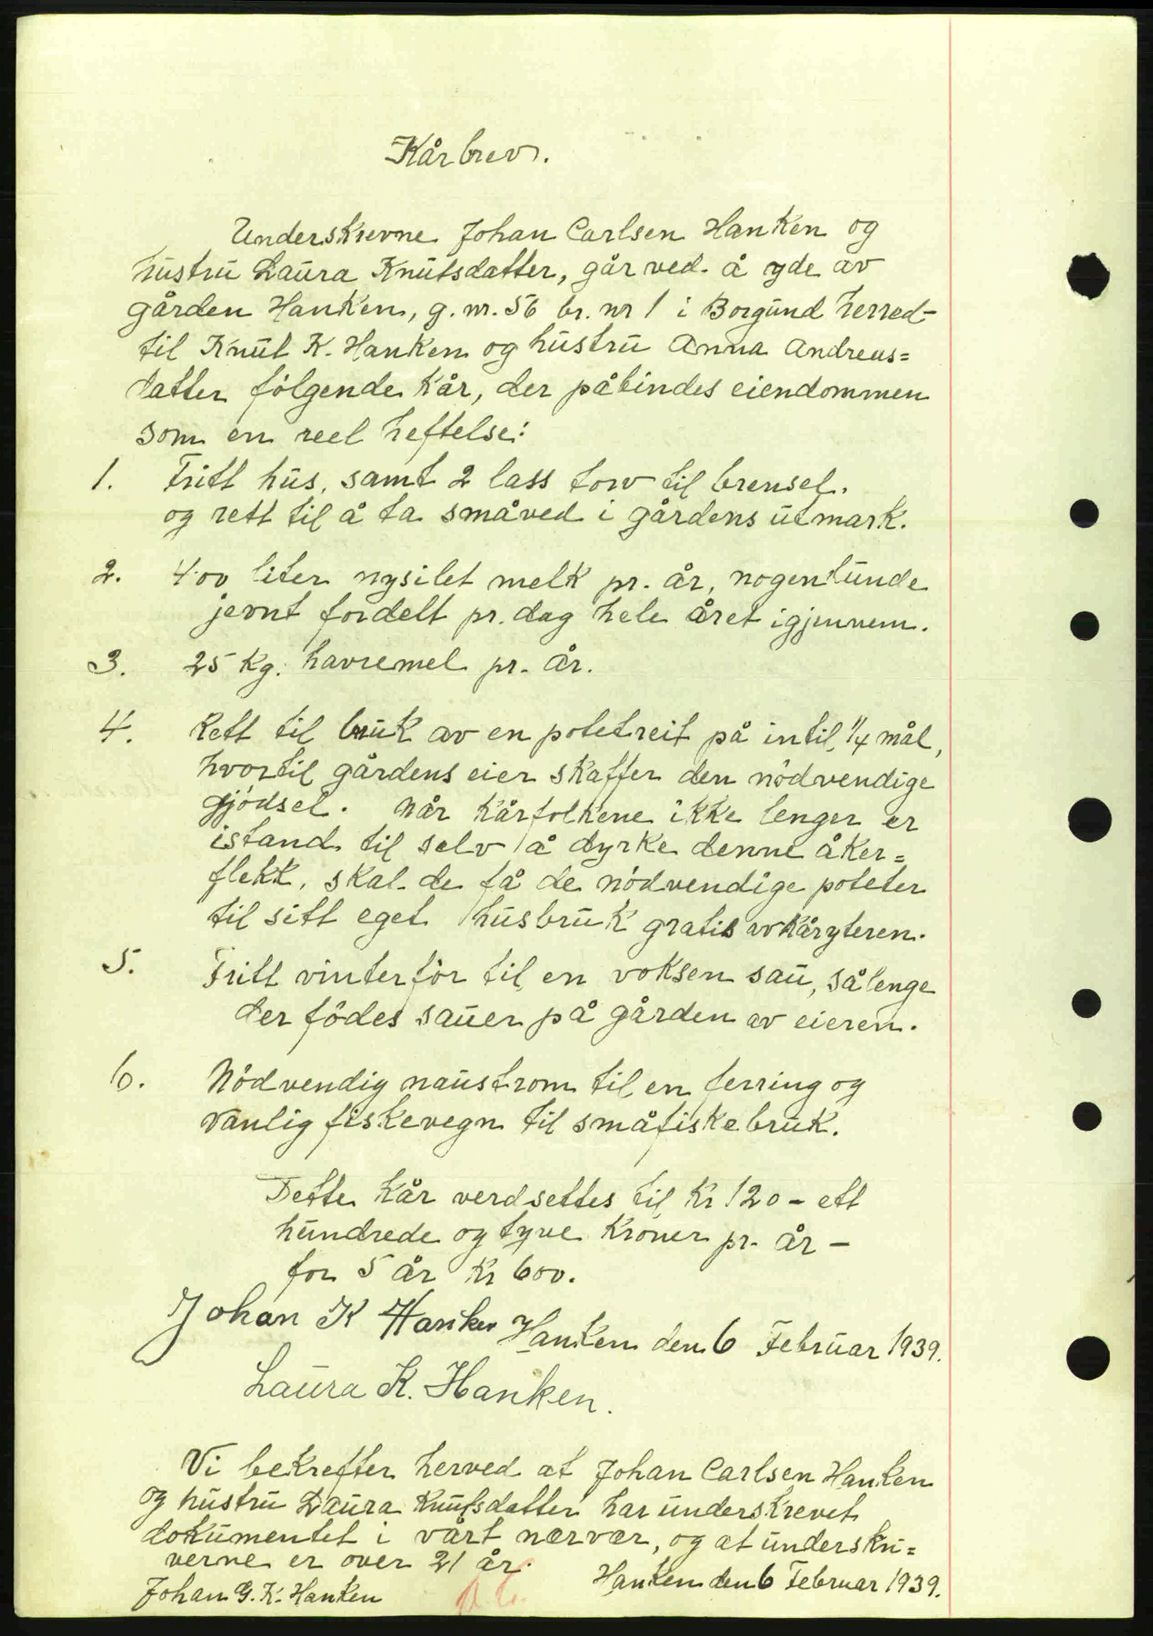 Kårbrev.
Underskrevne Johan Carlsen Hanken og
hustru Laura Knutsdatter, går ved å yde av
gården Hanken, g. nr. 56 br. nr 1 i Borgund herred
til Knut K. Hanken og hustru Anna Andreas=
datter følgende kår, der påbindes eiendommen
som en reel heftelse:
1. Fritt hus, samt 2 lass torv til brensel.
og rett til å ta småved i gårdens utmark.
2. 400 liter nysilet melk pr. år, nogenlunde
jevnt fordelt pr. dag hele året igjennem.
3. 25 kg. havremel pr. år.
4. Rett til bruk av en potetreit på intil 1/4 mål,
hvortil gårdens eier skaffer den nödvendige
gjödsel. Når kårfolkene ikke lenger er
istand til selv å dyrke denne åker=
flekk, skal de få de nödvendige poteter
til sitt eget husbruk gratis av kåryteren.
5. Fritt vinterfór til en voksen sau, sålenge
der födes sauer på gården av eieren.
6. Nödvendig naustrom til en ferring og
vanlig fiskevegn til småfiskebruk.
Dette kår verdsettes til kr 120 - ett
hundrede og tyve kroner pr. år -
for 5 år kr 600.
Johan K Hanken Hanken den 6 Februar 1939.
Laura K. Hanken.
Vi bekrefter herved at Johan Carlsen Hanken
og hustru Laura Knutsdatter har underskrevet
dokumentet i vårt nærvær, og at underskri=
verne er over 21 år. Hanken den 6 Februar 1939.
Johan G. K. Hanken